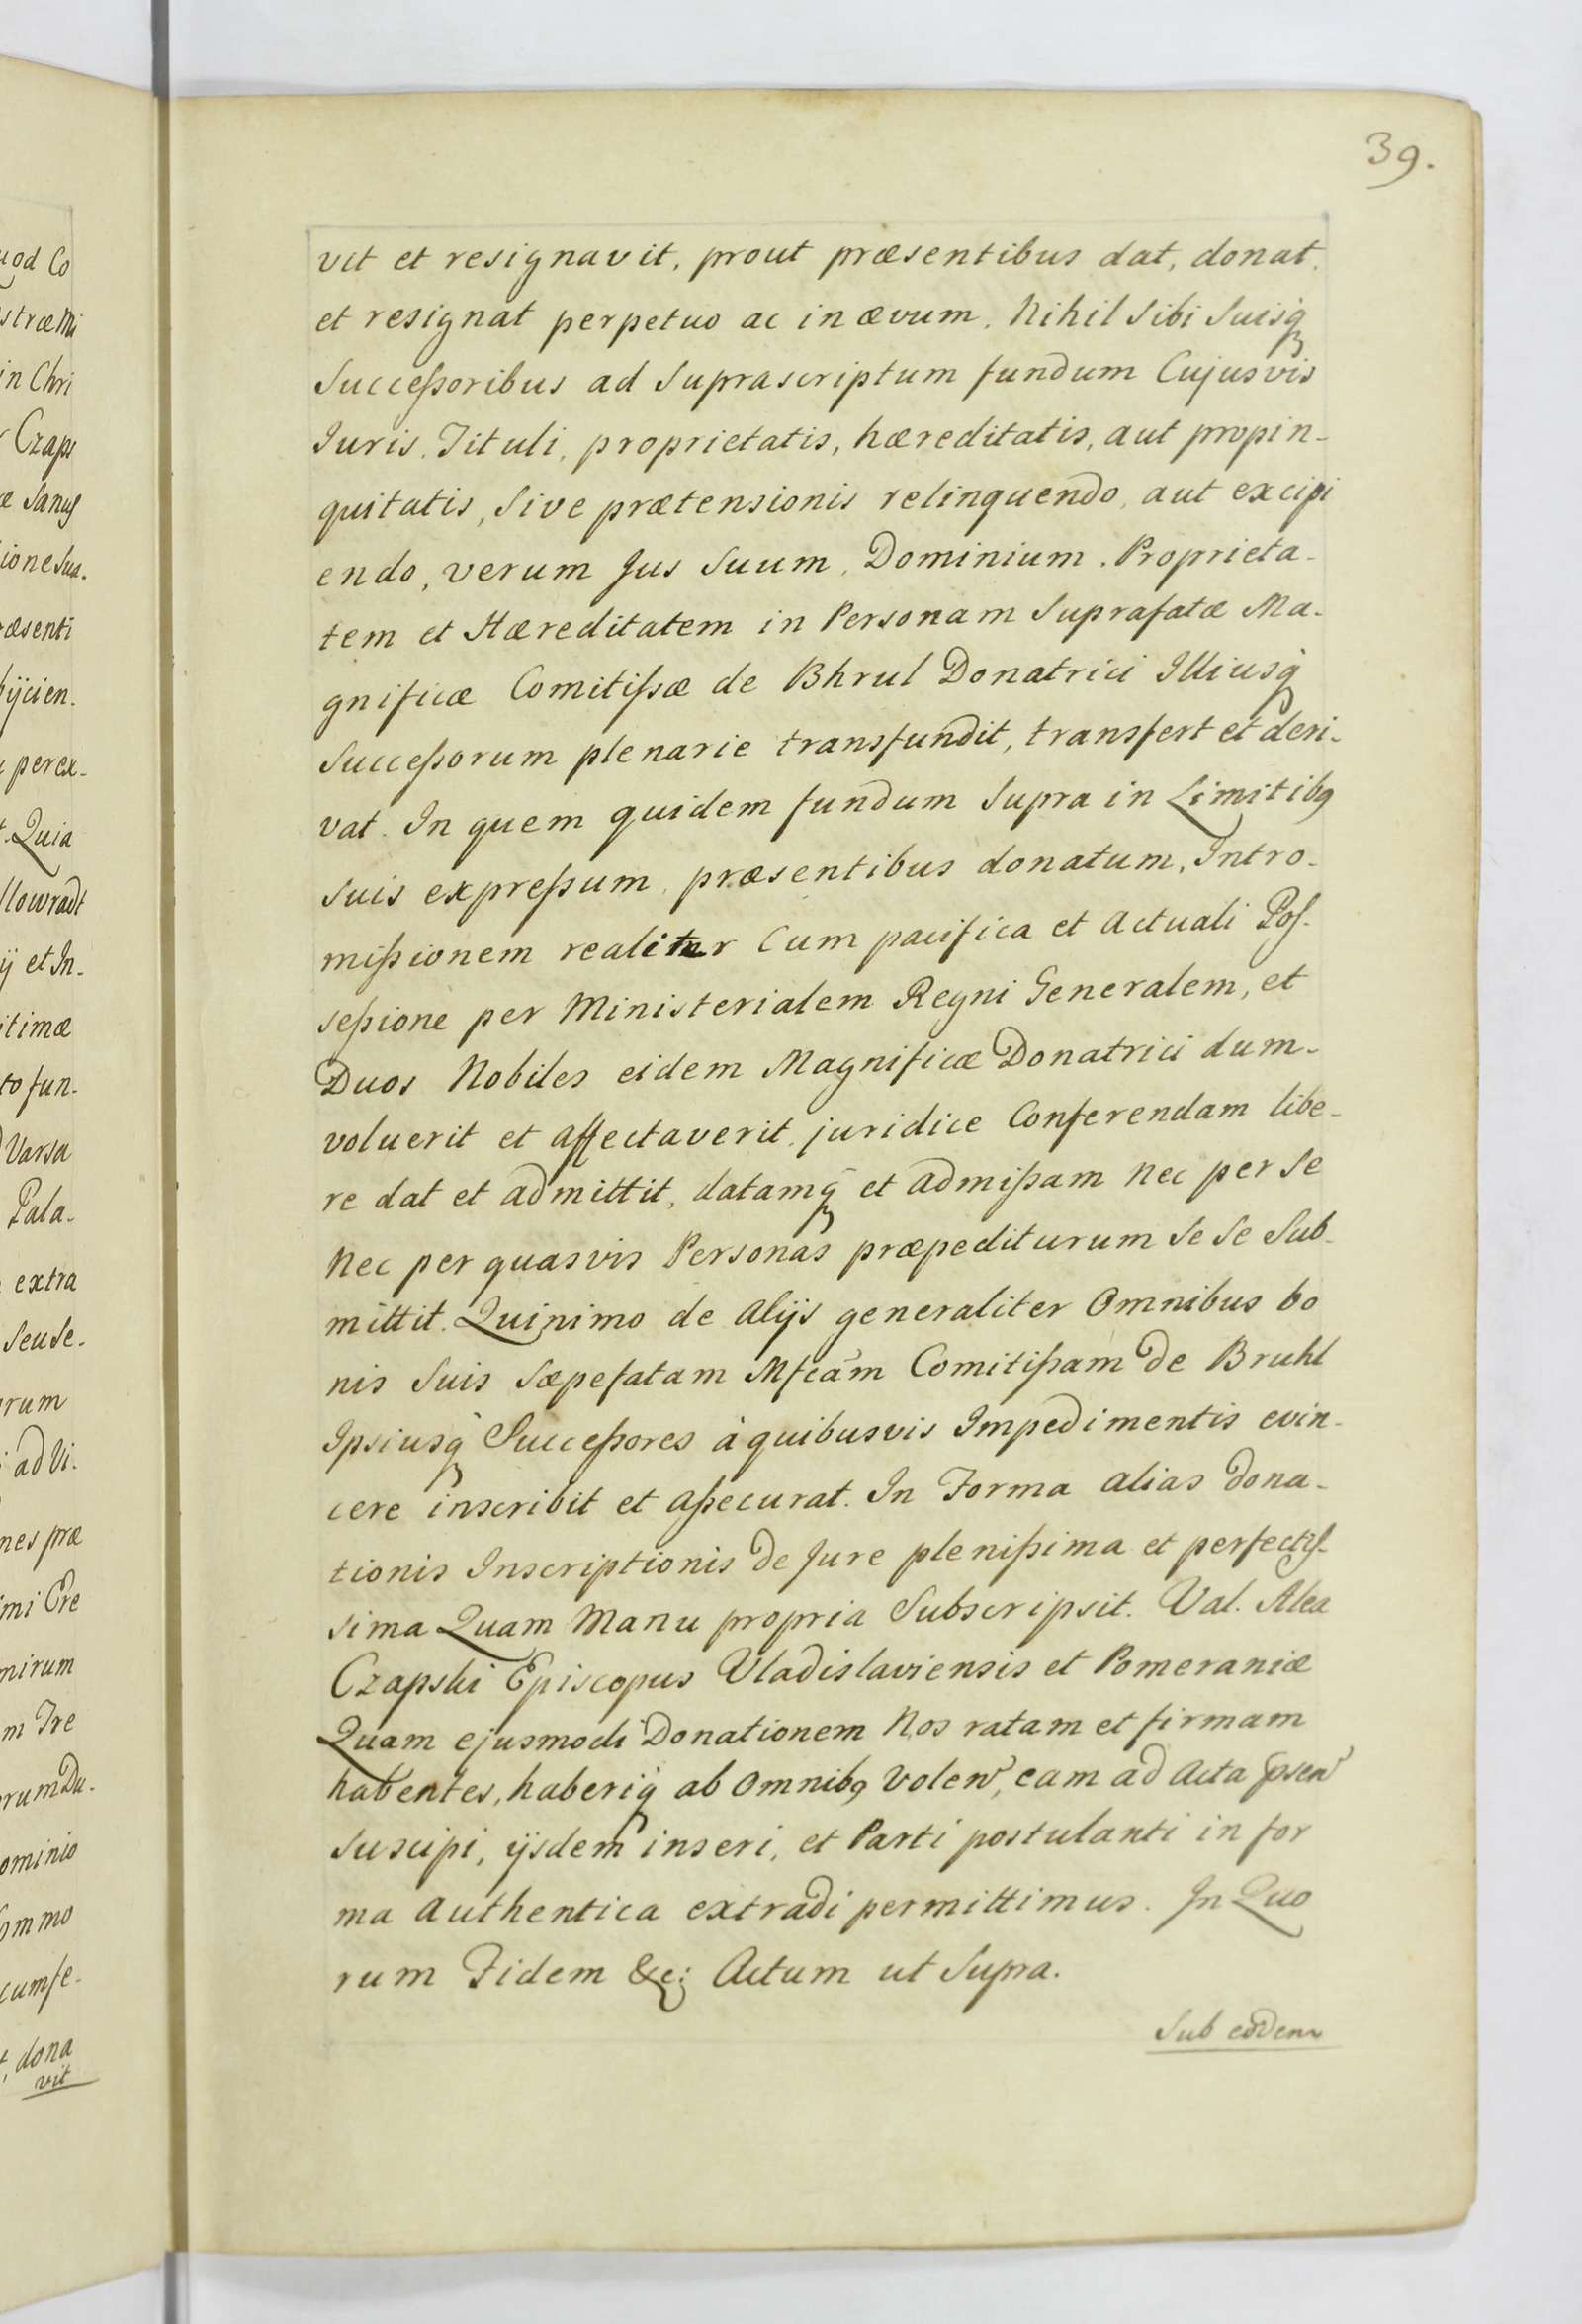 39.
vit et resignavit, prout præsentibus dat, donat,
et resignat perpetuo ac in ævum. Nihil Sibi Suisq̃
Succeßoribus ad Suprascriptum fundum Cujusvis
Iuris, Tituli, proprietatis, hæreditatis, aut propin-
quitatis, Sive prætensionis relinquendo, aut excipi
endo, verum Jus Suum, Dominium, Proprieta-
tem et Hæreditatem in Personam Suprafatæ Ma-
gnificæ Comitißæ de Bhrul Donatrici Illiusq̃
Succeßorum plenarie transfundit, transfert et deri-
vat. In quem quidem fundum Supra in Limitibꝯ
Suis expreßum, præsentibus donatum, Intro-
mißionem realiter Cum pacifica et Actuali Pos-
seßione per Ministerialem Regni Generalem, et
Duos Nobiles eidem Magnificæ Donatrici dum-
voluerit et affectaverit, juridice Conferendam libe-
re dat et admittit, datamq̃ et admißam nec per Se
Nec per quasvis Personas præpediturum Se Se Sub-
mittit. Quinimo de Alijs generaliter Omnibus bo
nis Suis Sæpefatam Mfcãm Comitißam de Bruhl
Ipsiusq̃ Succeßores à quibusvis Impedimentis evin-
cere inscribit et aßecurat. In Forma alias Dona-
tionis Inscriptionis de Jure plenißima et perfectis-
sima Quam Manu propria Subscripsit. Val. Alex
Czapski Episcopus Vladislaviensis et Pomeraniæ
Quam ejusmodi Donationem Nos ratam et firmam
habentes, haberiq̃ ab Omnibꝯ Volen͂, eam ad Acta p͂sen͂
Suscipi, ijsdem inseri, et Parti postulanti in for
ma Authentica extradi permittimus. In Quo
rum Fidem &c: Actum ut Supra.
Sub eodem
uod Co
stræ Mi
in Chri
Czaps
ione Sua.
æsenti
ijcien.
perex-
Quia
llowradt
ij et In-
itimæ
to fun-
Varsa
Pala-
extra
Seu Se-
rum
ad Vi-
nes præ
imi Ere
mirum
m Tre
rum Du-
ominio
ommo
cumfe-
dona
vit